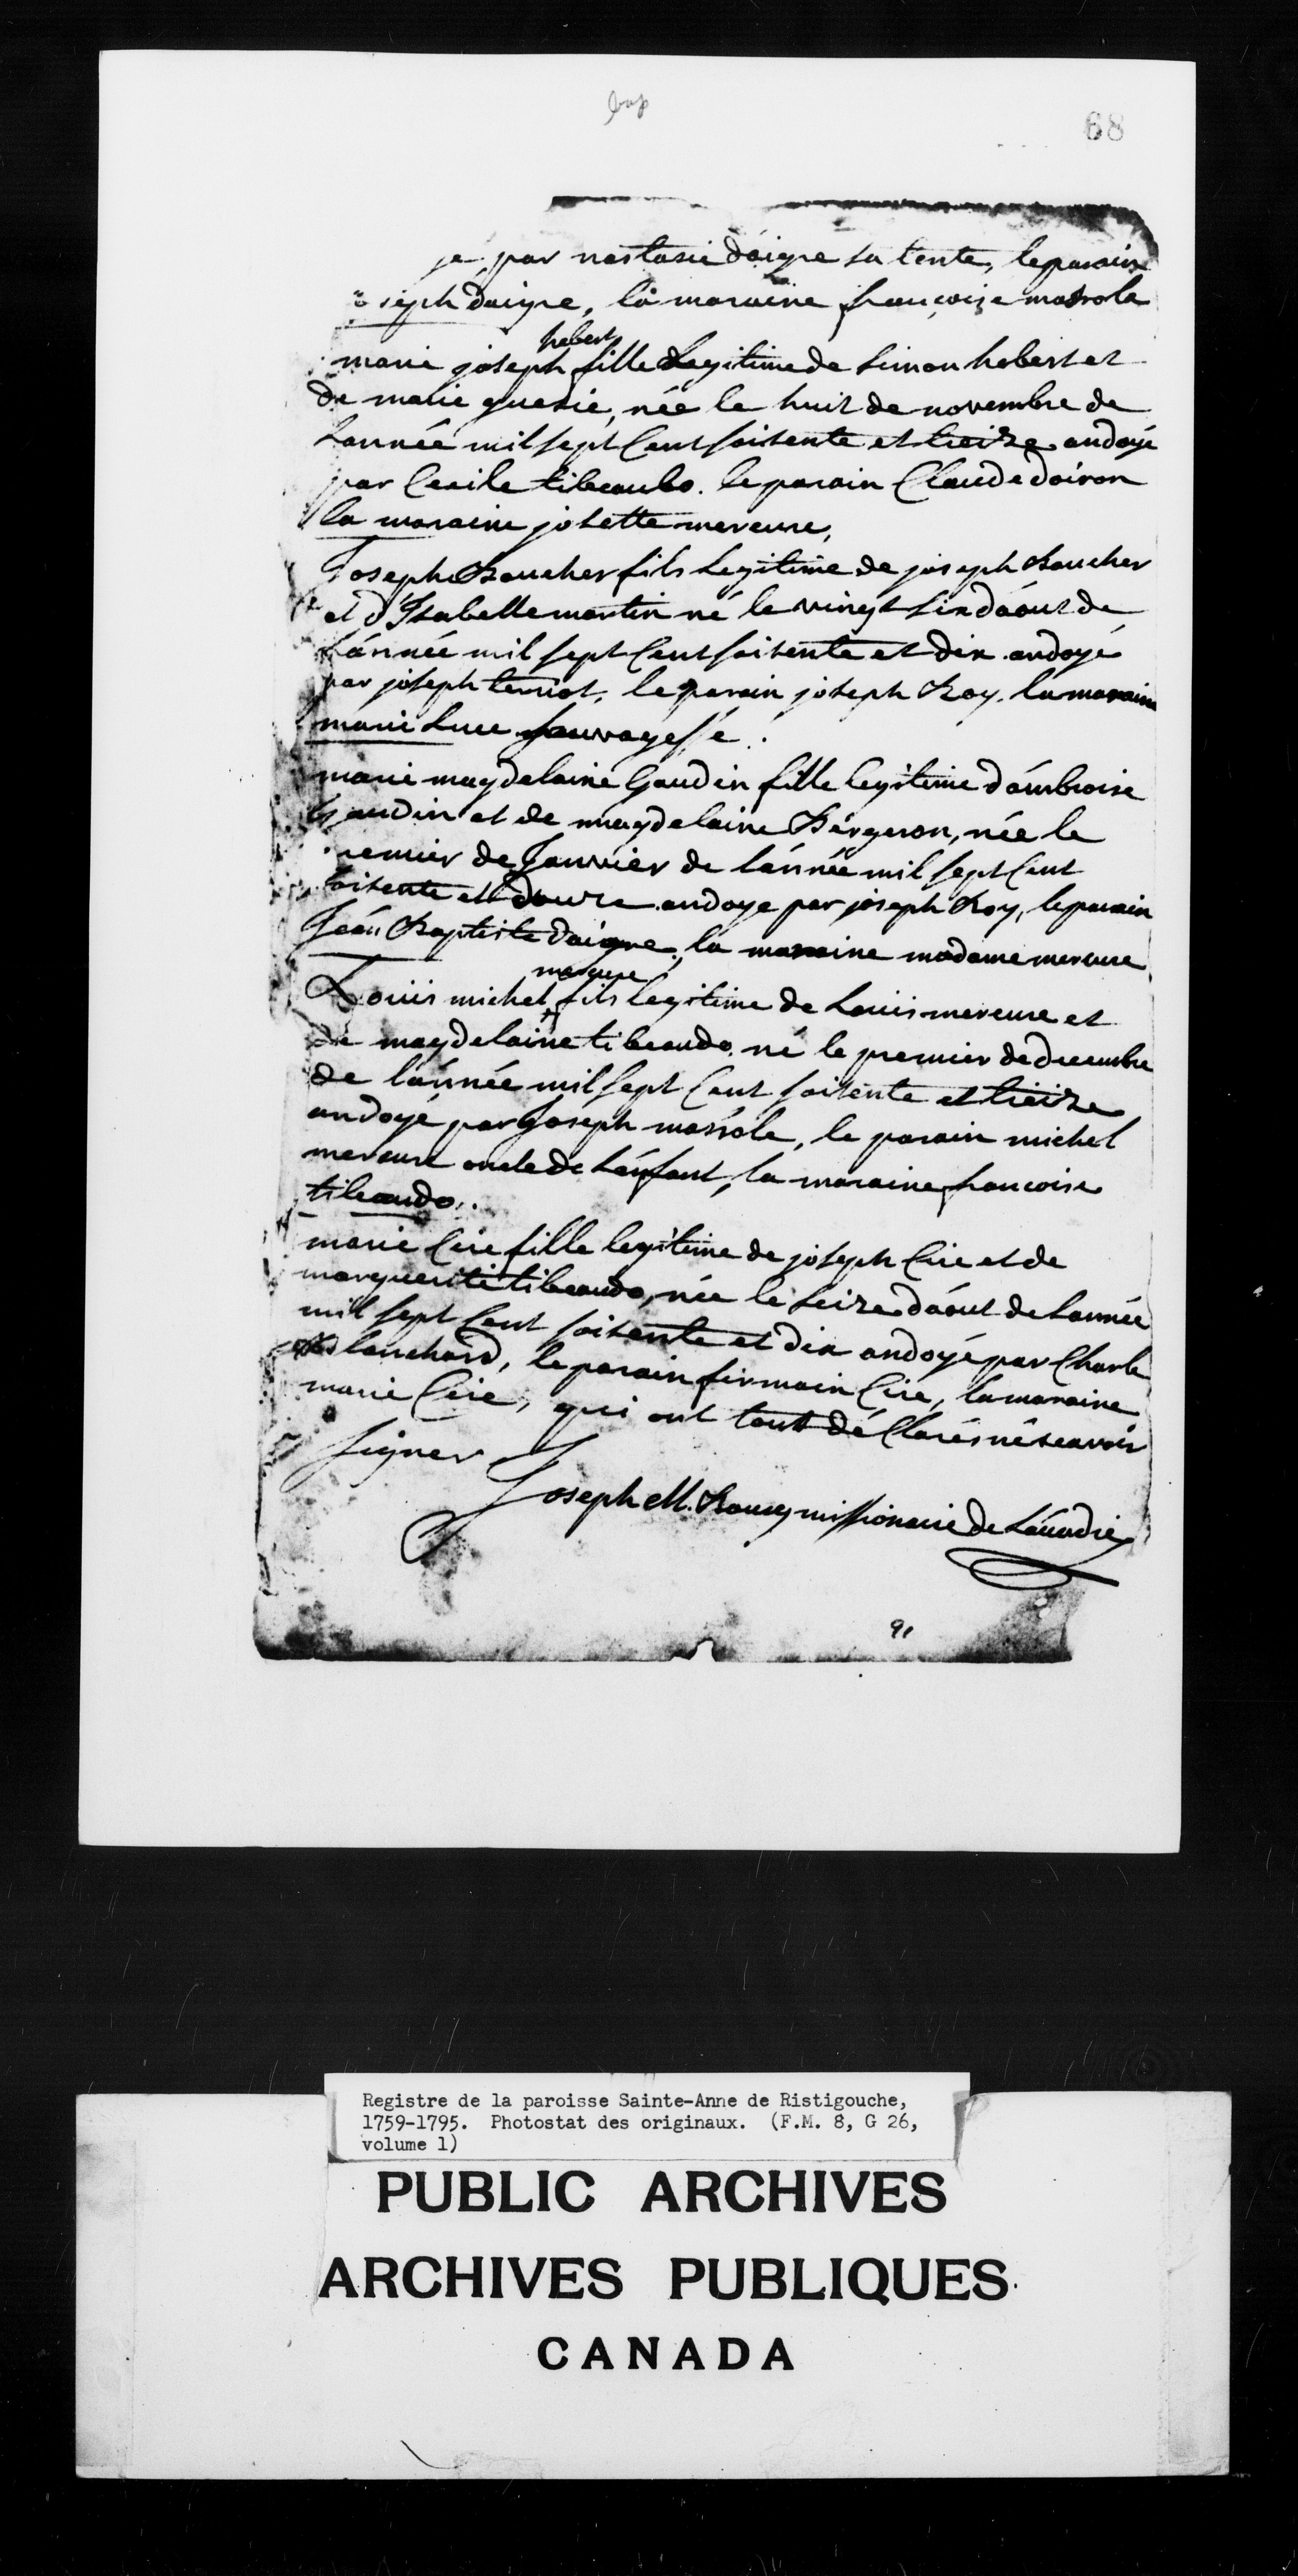 bap
68
ye par nastasie daigre sa tente, le parain
oseph daigre, la maraine françoize masrole
hebert
marie joseph fille Legitime de Simon hebert et
de marie guerie, née le huit de novembre de
Lannée mil sept Cent soisente et treize andoyé
par Cecile tibeaudo. le parain Claude doiron
la maraine josette mercure,
Joseph Boucher fils Legitime de joseph Boucher
et d'Isabelle martin né le vingt six daout de
Lánnée mil sept Cent soisente et dix andoyé
par joseph terriot, le parain joseph Roy, la maraine
marie Luce sauvagesse.
marie magdelaine Gaudin fille legitime dámbroise
Gaudin et de magdelaine Bérgeron, née le
remier de Janvier de lánnée mil sept Cent
soisente et douze andoye par joseph Roy, le parain
Jéan Baptiste daigre, la maraine madame mercure
mercure
Louis michel fils legitime de Louis mercure et
de magdelaine tibeaudo né le premier de decembre
de lánnée mil sept Cent soisente et treize
andoyé par Joseph masrole, le parain michel
mercure oncle de Lénfant, la maraine francoise
tibeaudo.
marie Cire fille legitime de joseph Cire et de
marguerite tibeaudo, née le seize dáout de Lannée
mil sept Cent soisente et dix andoyé par Charle
Blanchard, le parain firmain Cire, la maraine
marie Cire, qui ont tout dé Clarés né scavoir
signer
Joseph M. Bourg missionaire de Lácadie
91
Registre de la paroisse Sainte-Anne de Ristigouche,
1759-1795. Photostat des originaux. (F.M. 8, G 26,
volume 1)
PUBLIC ARCHIVES
ARCHIVES PUBLIQUES
CANADA